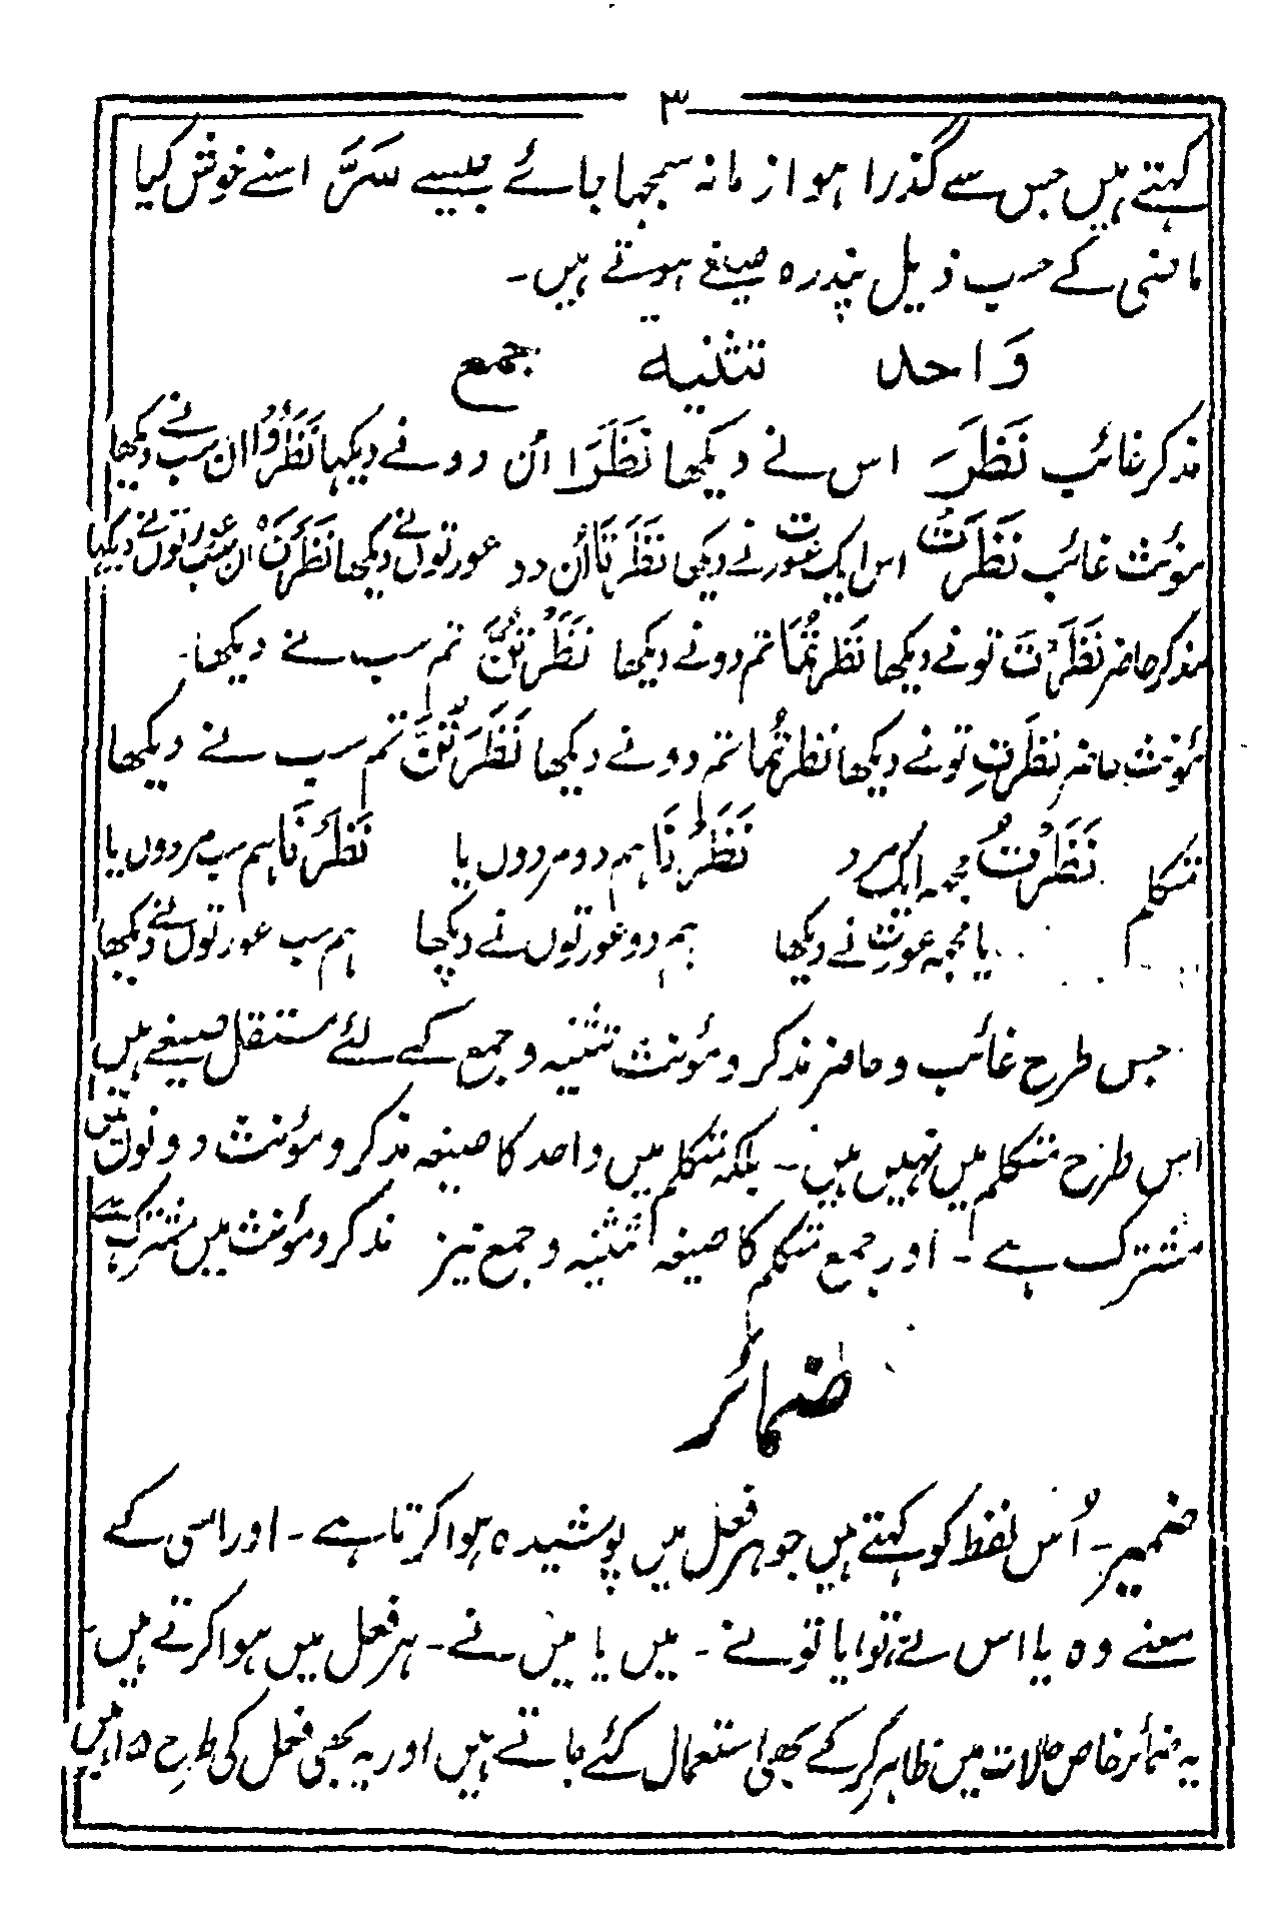 ۳
کہتے ہیں جس سے گذرا ہوا زمانہ سمجھا جائے جیسے سَرَّ اسنے خوش کیا
ماضی کے حسب ذیل پندرہ صیغے ہوتے ہیں۔
وَاحد تثنیہ جمع
مذکر غائب نَظَرَ اس نے دیکھا نَظَرَا اُن دو نے دیکہا نَظَرُوا ان سب نے دیکھا
مؤنث غائب نَظَرَتْ اس ایک عورت نے دیکھی نَظَرَتَا اُن دو عورتوں نے دیکھا نَظَرْنَ ان سب عورتوں نے دیکہا
مذکر حاضر نَظَرْتَ تو نے دیکھا نَظَرْتُمَا تم دو نے دیکھا نَظَرْتُنَّ تم سب نے دیکھا۔
مؤنث حاضر نظَرتِ تو نے دیکھا نظرتُما تم دو نے دیکھا نَظَرْتُنَّ تم سب نے دیکھا
متکلم نَظَرْتُ مجہہ ایک مرد نَظَرْنَا ہم دو مردوں یا نَظَرْنَا ہم سب مردوں یا
یا مجہہ عورت نے دیکھا ہم دو عورتوں نے دیکھا ہم سب عورتوں نے دیکھا
جس طرح غائب و حاضر مذکر و مؤنث تثنیہ و جمع کے لئے مستقل صیغے ہیں
اس طرح متکلم میں نہیں ہیں۔ بلکہ متکلم میں واحد کا صیغہ مذکر و مؤنث دونوں میں
مشترک ہے۔ اور جمع متکلم کا صیغہ تثنیہ و جمع نیز مذکر و مؤنث میں مشترک ہے
ضمائر
ضمیر۔ اُس لفظ کو کہتے ہیں جو ہر فعل میں پوشیدہ ہوا کرتا ہے۔ اور اسی کے
معنے وہ یا اس نے، تو یا تو نے۔ میں یا میں نے۔ ہر فعل میں ہوا کرتے ہیں۔
یہ ضمائر خاص حالات میں ظاہر کر کے بھی استعمال کئے جاتے ہیں اور یہ بھی فعل کی طرح ۱۵ ہیں